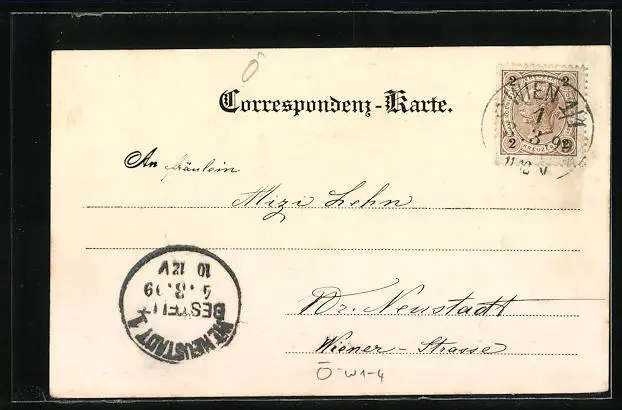 Ö
Correspondenz-Karte.
2 2
2 KREUZER 2
WIEN 1/1
1
3 99
11-12 V
An Fräulein
Mizi Lehn
Wr. Neustadt
Wiener-Strasse
Ö-W1-4
WR. NEUSTADT 1
BESTELLT
. 3. 99
10 12 V